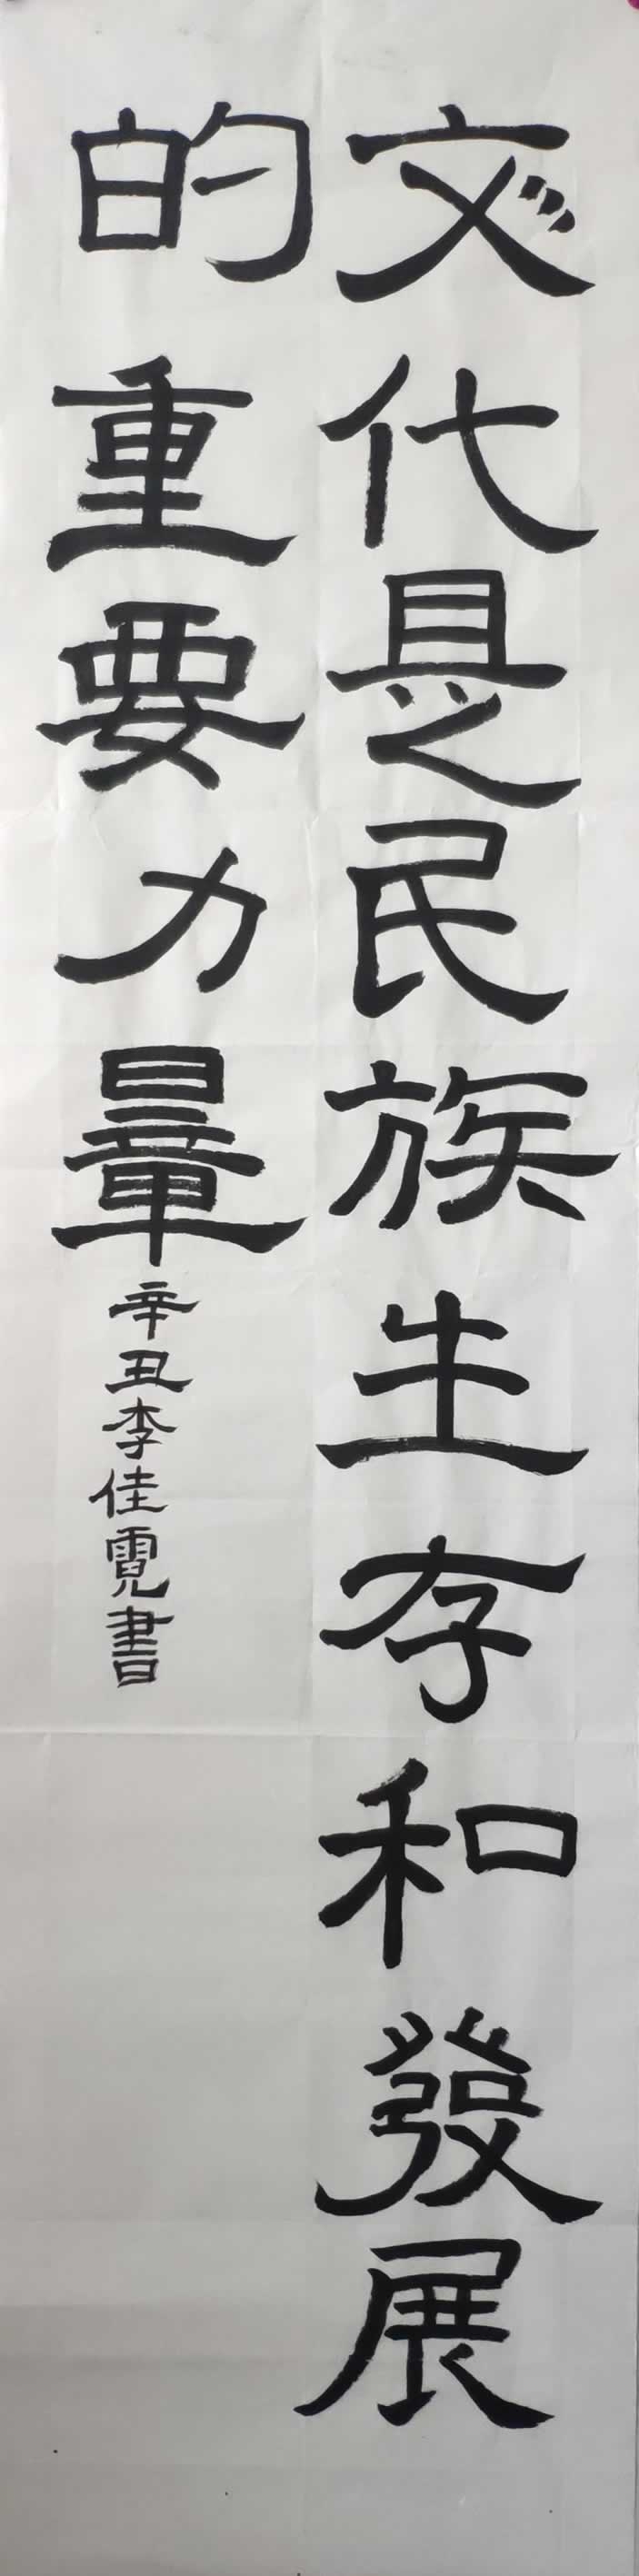 文化是民族生存和發展
的重要力量
辛丑李佳霓書